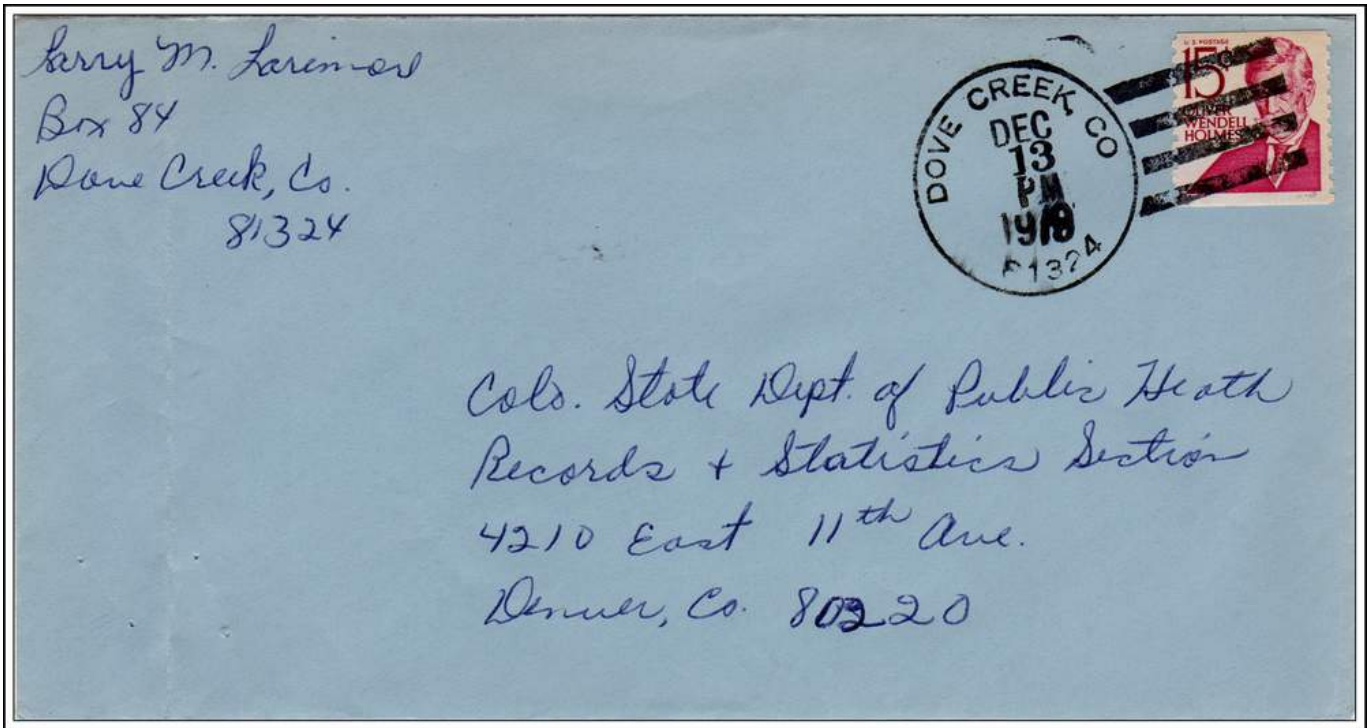 Larry M. Larimore
Box 84
Dove Creek, Co.
81324
DOVE CREEK, CO
DEC
13
PM
81324
U.S. POSTAGE
15c
OLIVER
WENDELL
HOLMES
Colo. State Dept. of Public Heath
Records + Statistics Section
4210 East 11th Ave.
Denver, Co. 80220